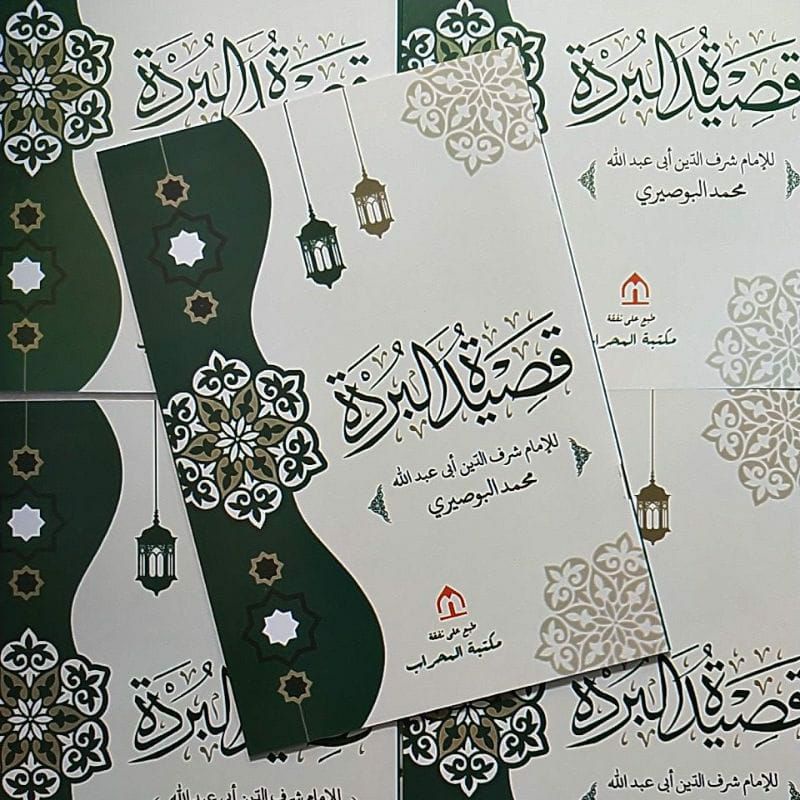 قصيدة البردة
للإمام شرف الدين أبى عبد الله
محمد البوصيري
طبع على نفقة
مكتبة المحراب
قصيدة البُرْدَة
قصيدة البُرْدَة
للإمام شرف الدّين أبى عبد الله
محمد البوصيري
طبع على نفقة
مكتبة المحراب
قصيدة البُرْدَة
للإمام شرف الدّين أبى عبد الله
قصيدة البُرْدَة
للإمام شرف الدّين أبى عبد الله